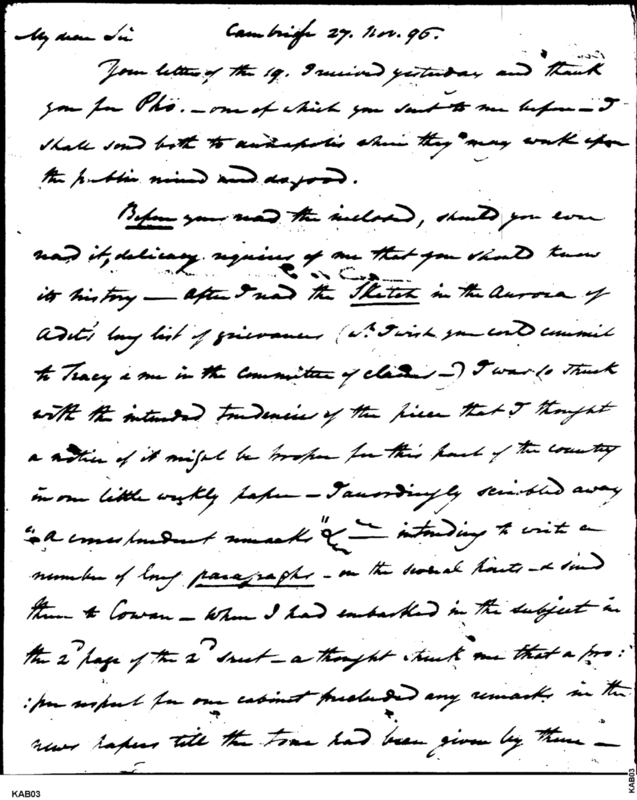 My dear Sir Cambridge 27. Nov. 96.
Your letter of the 19. I received yesterday and thank
you for Pho. — one of which you sent to me before — I
shall send both to annapolis where they may work upon
the public mind and do good.
Before you read the inclosed, should you ever
read it, delicacy requires of me that you should know
its history — after I read the Sketch in the Aurora of
Adet's long list of grievances (wh. I wish you could commit
to Tracy & me in the Committee of claims —) I was so struck
with the intended tendencies of the piece that I thought
a notice of it might be proper for this part of the country
in our little weekly paper — I accordingly scribbled away
"a correspondent remarks" &c — intending to write a
number of long paragraphs — on the several points — & send
them to Cowan — when I had embarked in the subject in
the 2d page of the 2d sheet — a thought struck me that a pro:
:per respect for our cabinet precluded any remarks in the
news papers till the tone had been given by them —
KAB03
KAB03